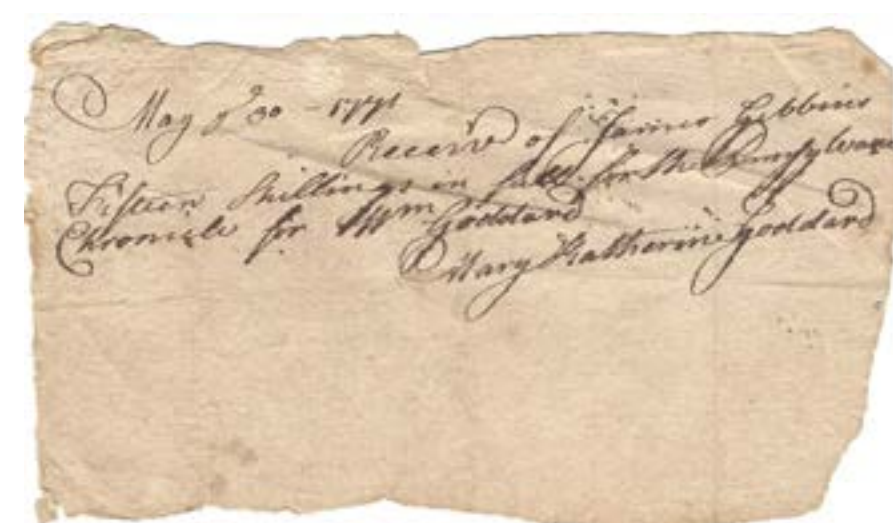 May ye 30 - 1771
Received of James Gibbins
Fifteen Shillings in full for the Pennsylvania
Chronicle for Wm Goddard
Mary Katherine Goddard